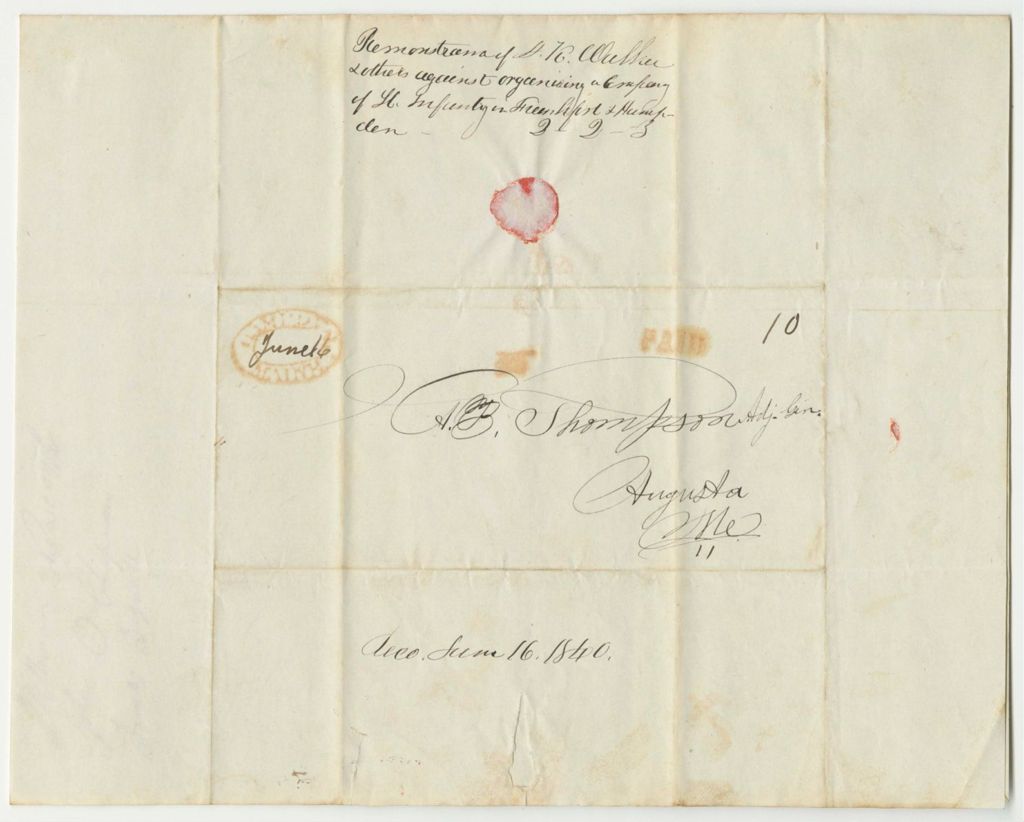 Remonstrance of
& others against organizing a Company
of Lt. Infantry in Frankfort & Hamp-
den - 2 - 2 - 3
HAMPDEN
June 16
MAINE
PAID
10
A. B. Thompson Adj. Gen.
Augusta
Me.
11
Recd. June 16. 1840.